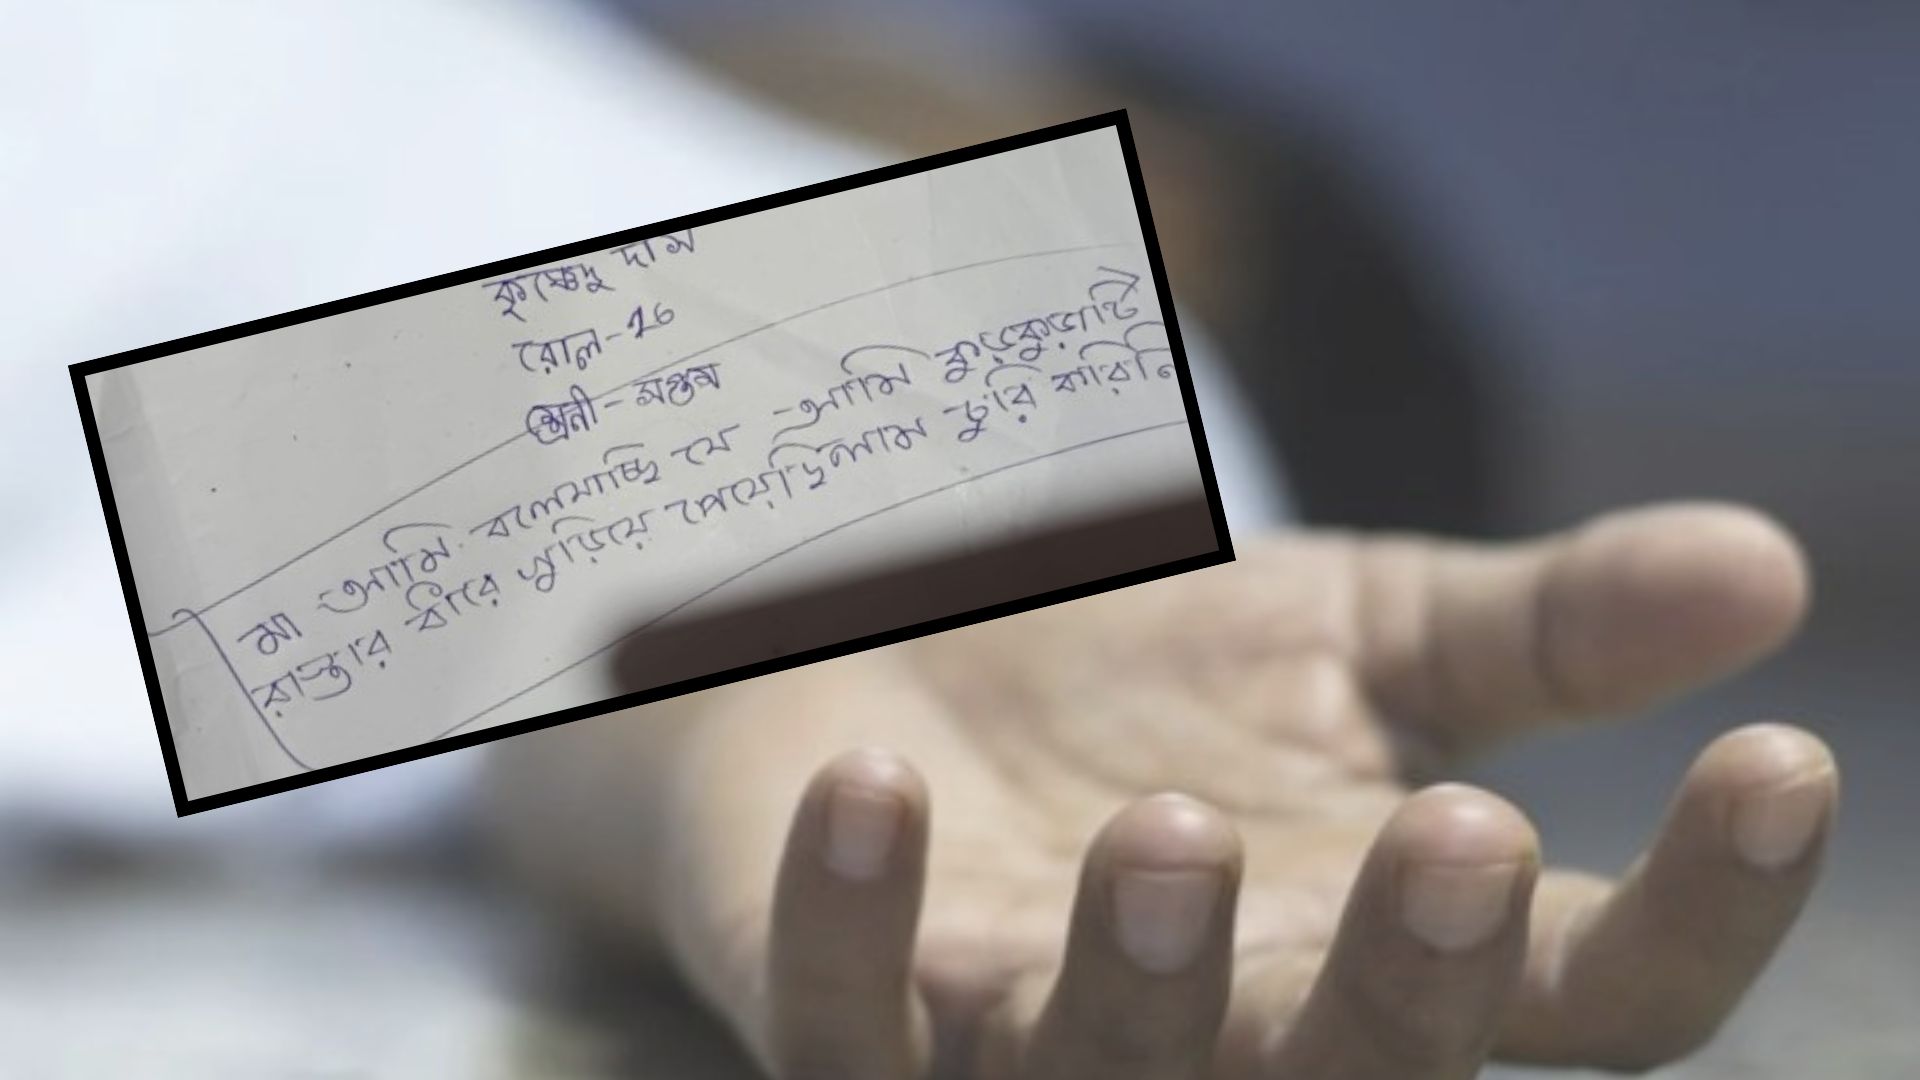 কৃষ্ণেন্দু দাস
রোল-16
শ্রেনী-সপ্তম
মা আমি বলেযাচ্ছি যে আমি কুড়কুড়াটি
রাস্তার ধারে কুড়িয়ে পেয়েছিলাম চুরি করিনি